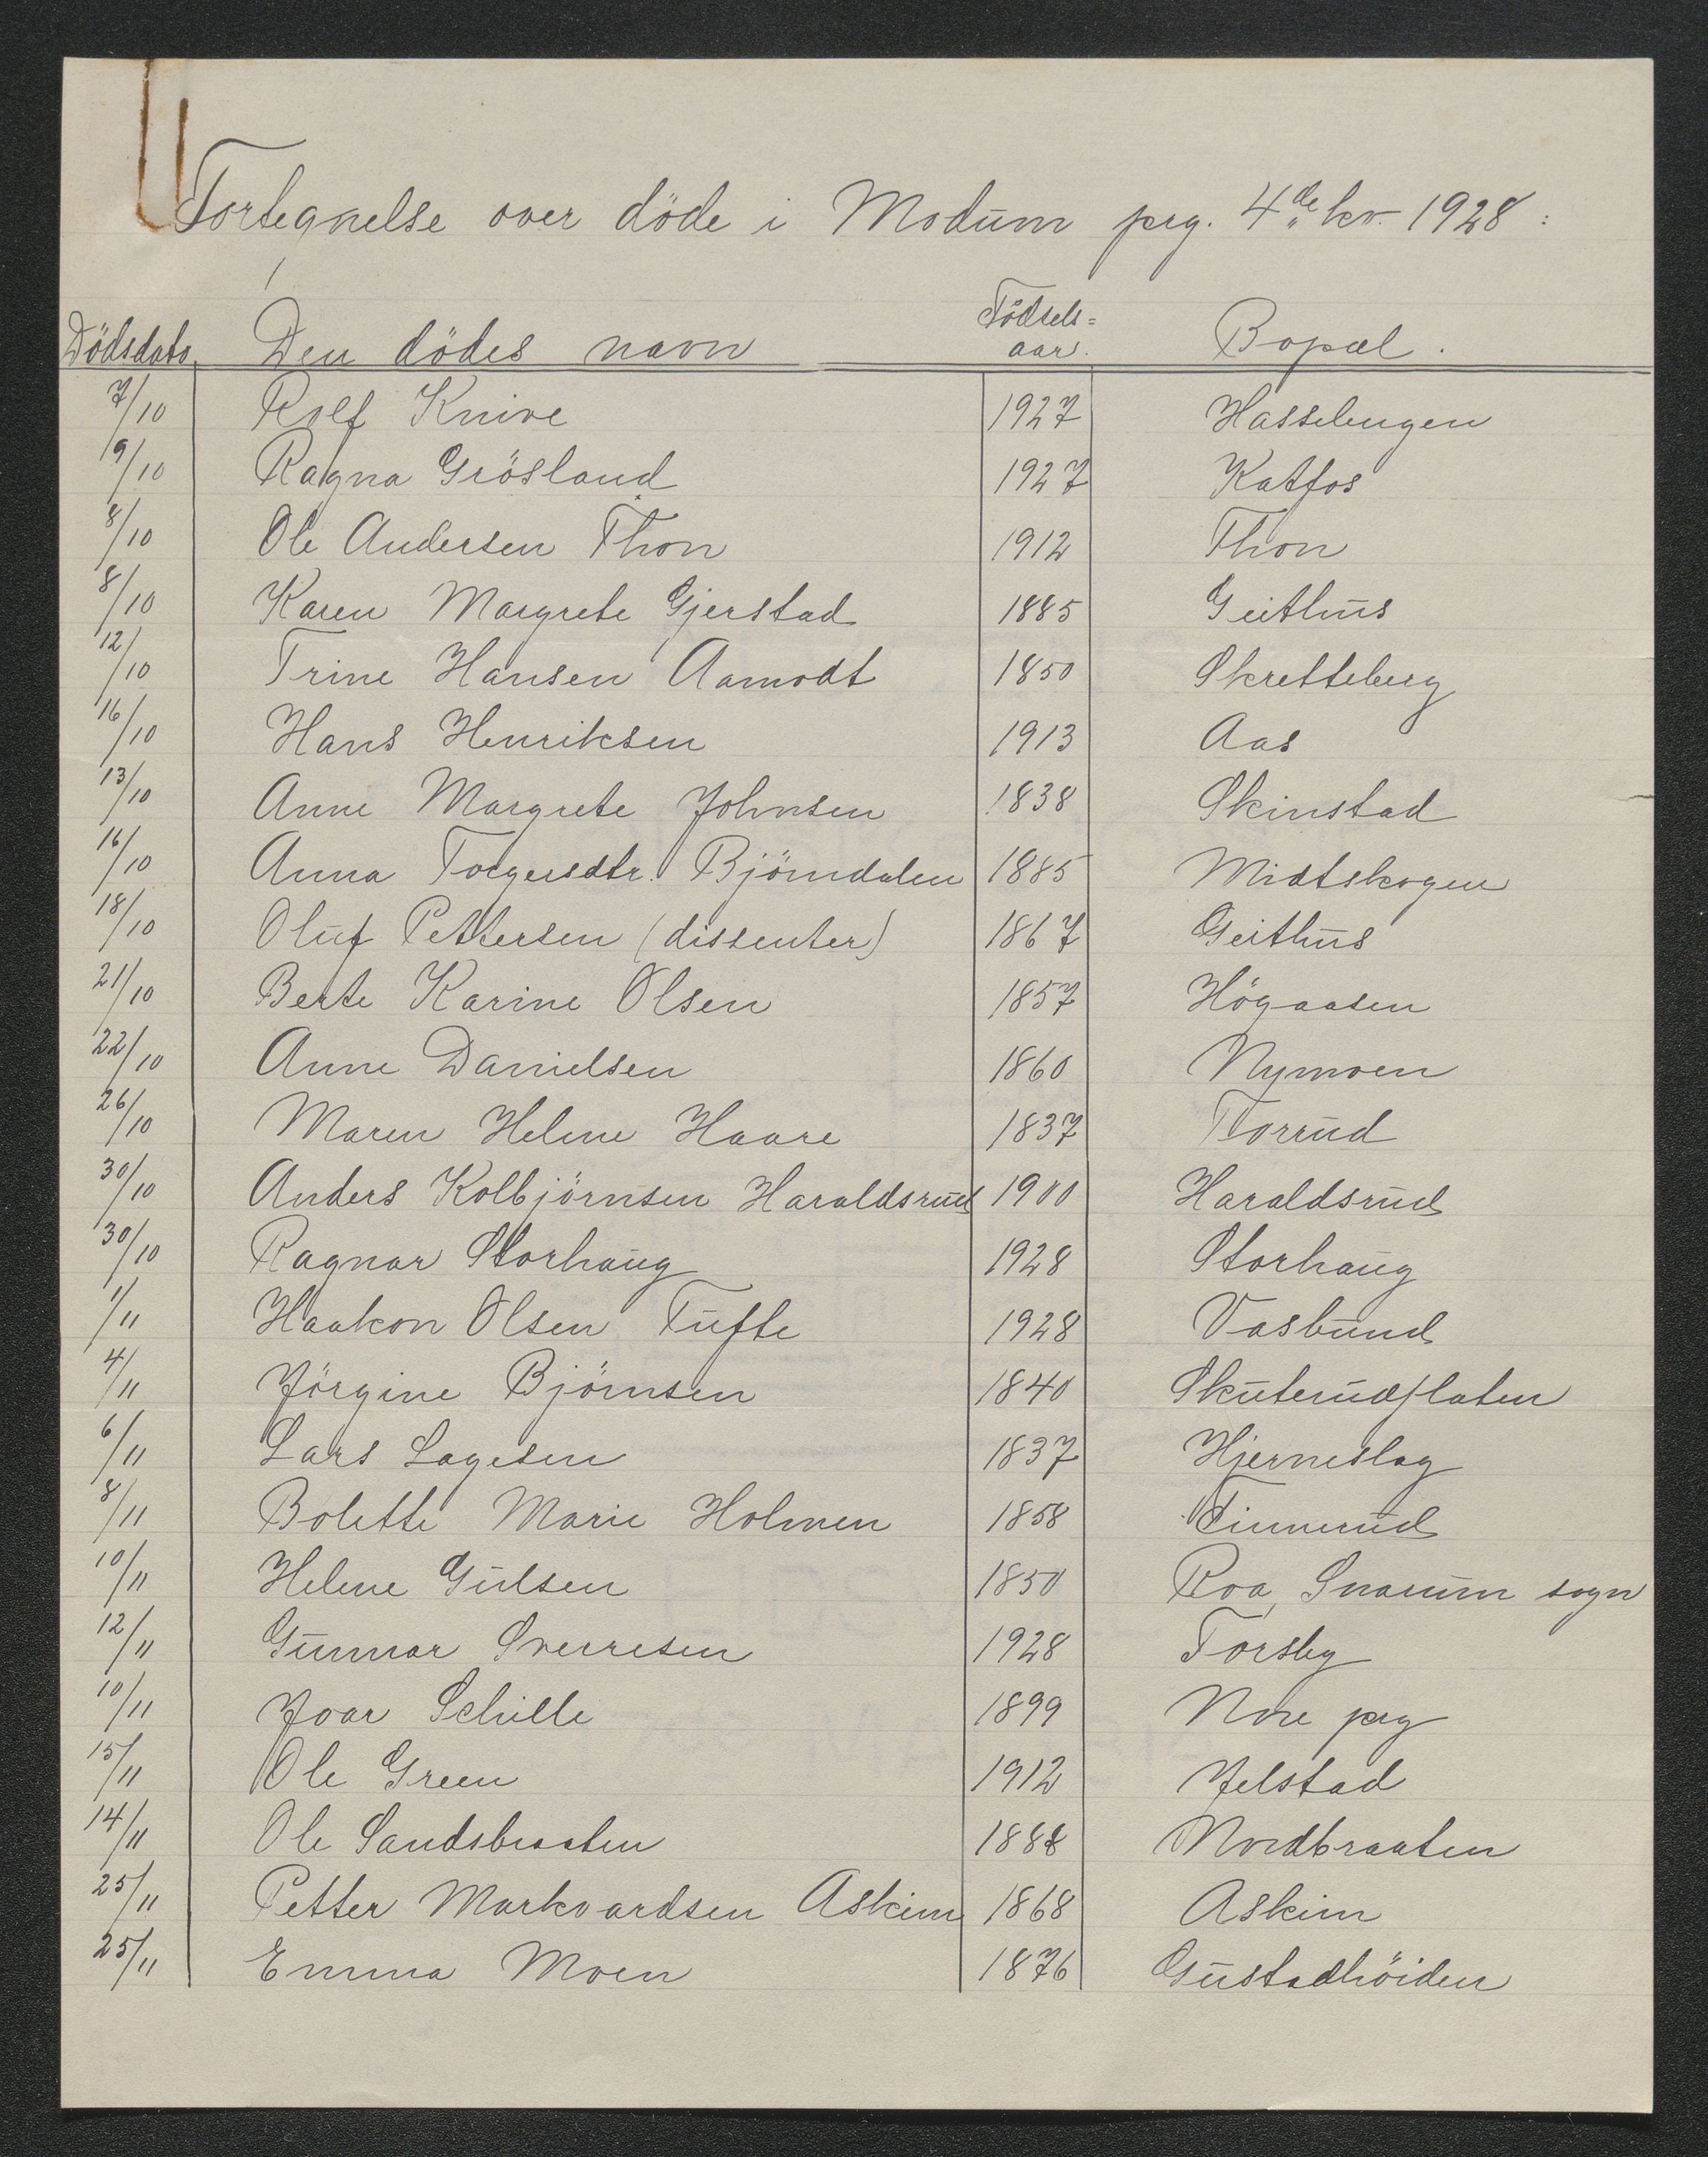 Fortegnelse over döde i Modum prg. 4de kv. 1928:
Dödsdato Den dödes navn Födsels= aar. Bopæl.
7/10 Rolf Knive 1927 Hasselengen
9/10 Ragna Grösland 1927 Katfos
8/10 Ole Andersen Thon 1912 Thon
8/10 Karen Margrete Gjerstad 1885 Geithus
12/10 Trine Hansen Aamodt 1850 Skretteberg
16/10 Hans Henriksen 1913 Aas
13/10 Anne Margrete Johnsen 1838 Skinstad
16/10 Anna Torgersdtr. Björndalen 1885 Midtskogen
18/10 Oluf Pettersen (dissenter) 1867 Geithus
21/10 Berte Karine Olsen 1857 Högaasen
22/10 Anne Danielsen 1860 Nymoen
26/10 Maren Helene Haare 1837 Torrud
30/10 Anders Kolbjörnsen Haraldsrud 1900 Haraldsrud
30/10 Ragnar Storhaug 1928 Storhaug
1/11 Haakon Olsen Tufte 1928 Vasbund
4/11 Jörgine Björnsen 1840 Skuterudflaten
6/11 Lars Lagesen 1837 Hjerneslag
8/11 Bolette Marie Holmen 1858 Tinnerud
10/11 Helene Gulsen 1850 Roa, Snarum sogn
12/11 Gunnar Sverresen 1928 Torsby
10/11 Joar Schille 1899 Nore prg
15/11 Ole Green 1912 Jelstad
14/11 Ole Sandsbraaten 1888 Nordbraaten
25/11 Petter Markvardsen Askim 1868 Askim
25/11 Emma Moen 1876 Gustadhöiden